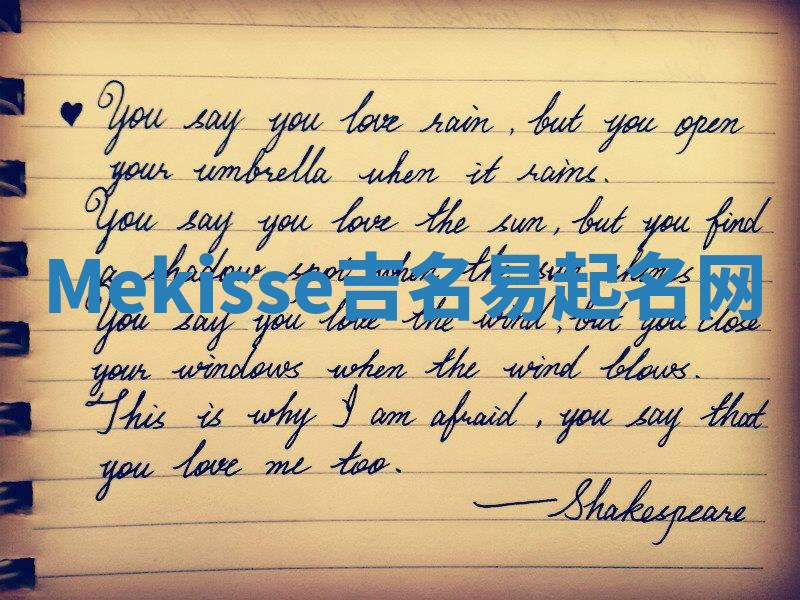 ♥ You say you love rain, but you open
your umbrella when it rains.
You say you love the sun, but you find
a shadow spot when the sun shines
Mekisse吉名易起名网
You say you love the wind, but you close
your windows when the wind blows.
This is why I am afraid, you say that
you love me too.
—Shakespeare